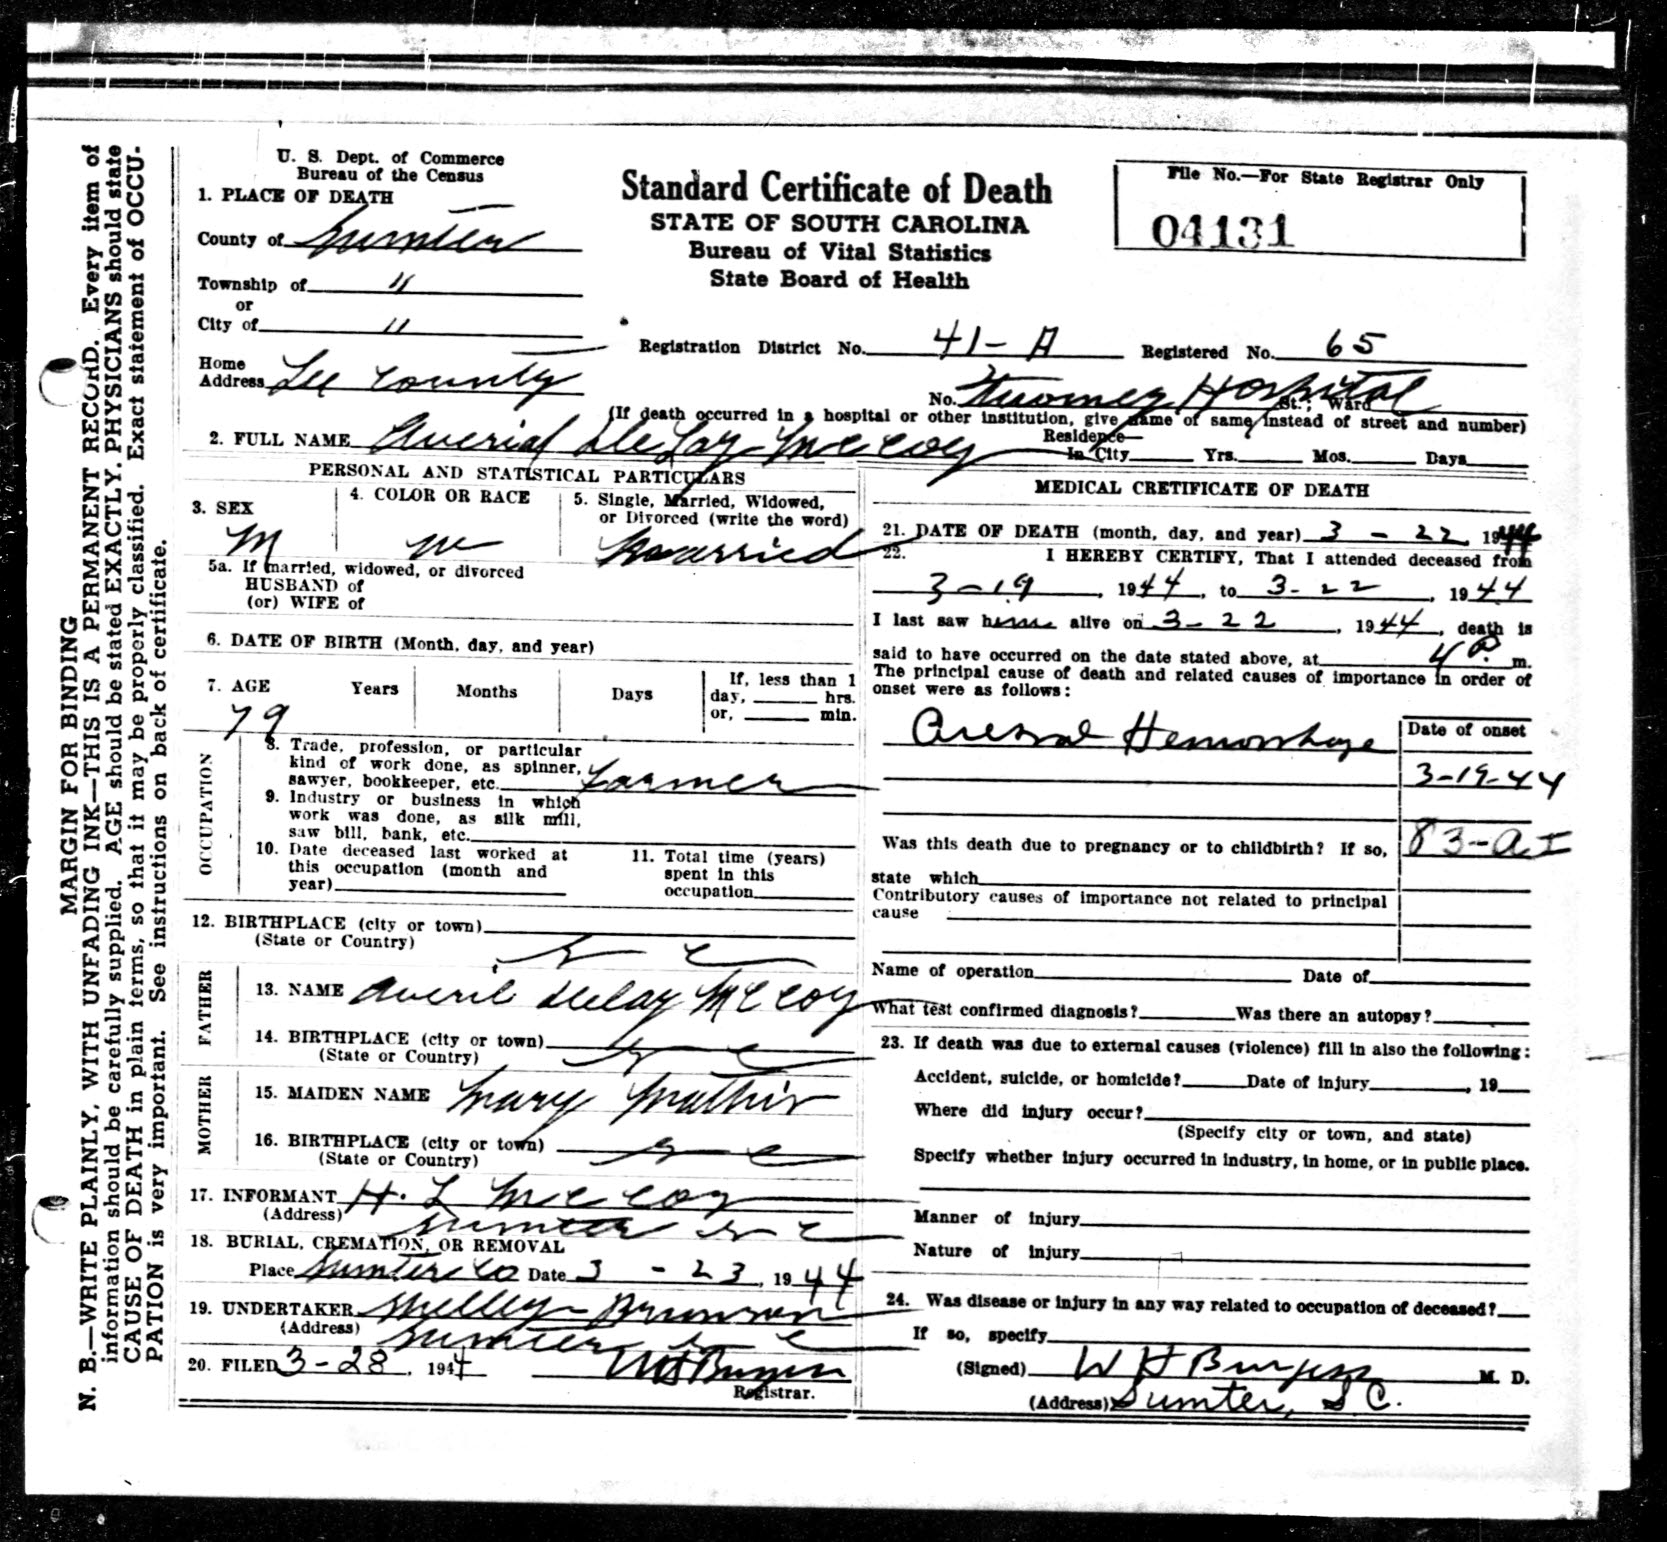 U. S. Dept. of Commerce
Bureau of the Census
1. PLACE OF DEATH
County of Sumter
Township of "
or
City of "
Home
Address Lee County
Standard Certificate of Death
STATE OF SOUTH CAROLINA
Bureau of Vital Statistics
State Board of Health
File No.—For State Registrar Only
04131
Registration District No. 41-A Registered No. 65
No. Tuomey Hospital St.; Ward
(If death occurred in a hospital or other institution, give name of same instead of street and number)
2. FULL NAME DeLay McCoy
Residence—
In City Yrs. Mos. Days
PERSONAL AND STATISTICAL PARTICULARS
3. SEX
M
4. COLOR OR RACE
W
5. Single, Married, Widowed,
or Divorced (write the word)
Married
5a. If married, widowed, or divorced
HUSBAND of
(or) WIFE of
6. DATE OF BIRTH (Month, day, and year)
7. AGE Years Months Days If, less than 1
day, hrs.
or, min.
79
OCCUPATION
8. Trade, profession, or particular
kind of work done, as spinner,
sawyer, bookkeeper, etc. Farmer
9. Industry or business in which
work was done, as silk mill,
saw bill, bank, etc.
10. Date deceased last worked at
this occupation (month and
year)
11. Total time (years)
spent in this
occupation
12. BIRTHPLACE (city or town)
(State or Country) S C
FATHER
13. NAME Averil Delay McCoy
14. BIRTHPLACE (city or town)
(State or Country) S C
MOTHER
15. MAIDEN NAME Mary Mathis
16. BIRTHPLACE (city or town)
(State or Country) S C
17. INFORMANT H. L McCoy
(Address) Sumter S C
18. BURIAL, CREMATION, OR REMOVAL
Place Sumter Co Date 3 - 23, 1944
19. UNDERTAKER Shelley Brunson
(Address) Sumter S C
20. FILED 3-28, 1944 Burgess
Registrar.
MEDICAL CRETIFICATE OF DEATH
21. DATE OF DEATH (month, day, and year) 3 - 22, 1944
22. I HEREBY CERTIFY, That I attended deceased from
3-19, 1944, to 3-22, 1944
I last saw him alive on 3-22, 1944, death is
said to have occurred on the date stated above, at 4 P. m.
The principal cause of death and related causes of importance in order of
onset were as follows:
Hemorrhage
Date of onset
3-19-44
83-a I
Was this death due to pregnancy or to childbirth? If so,
state which
Contributory causes of importance not related to principal
cause
Name of operation Date of
What test confirmed diagnosis? Was there an autopsy?
23. If death was due to external causes (violence) fill in also the following:
Accident, suicide, or homicide? Date of injury, 19
Where did injury occur?
(Specify city or town, and state)
Specify whether injury occurred in industry, in home, or in public place.
Manner of injury
Nature of injury
24. Was disease or injury in any way related to occupation of deceased?
If so, specify
(Signed) W H Burgess M. D.
(Address) Sumter, S.C.
MARGIN FOR BINDING
N. B.—WRITE PLAINLY, WITH UNFADING INK—THIS IS A PERMANENT RECORD. Every item of
information should be carefully supplied. AGE should be stated EXACTLY. PHYSICIANS should state
CAUSE OF DEATH in plain terms, so that it may be properly classified. Exact statement of OCCU-
PATION is very important. See instructions on back of certificate.